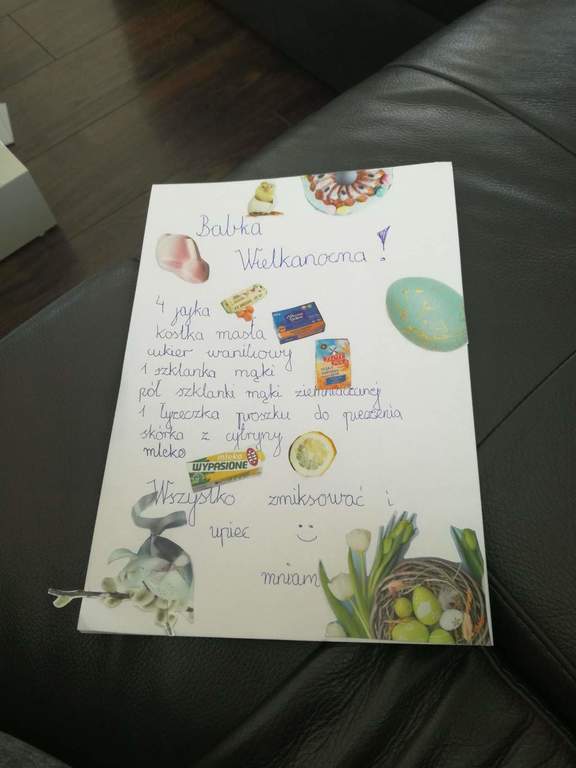 Babka
Wielkanocna!
4 jajka
kostka masła
cukier waniliowy
1 szklanka mąki
pół szklanki mąki ziemniaczanej
1 łyżeczka proszku do pieczenia
skórka z cytryny
mleko
mleko
WYPASIONE
Wszystko zmiksować i
upiec
mniam